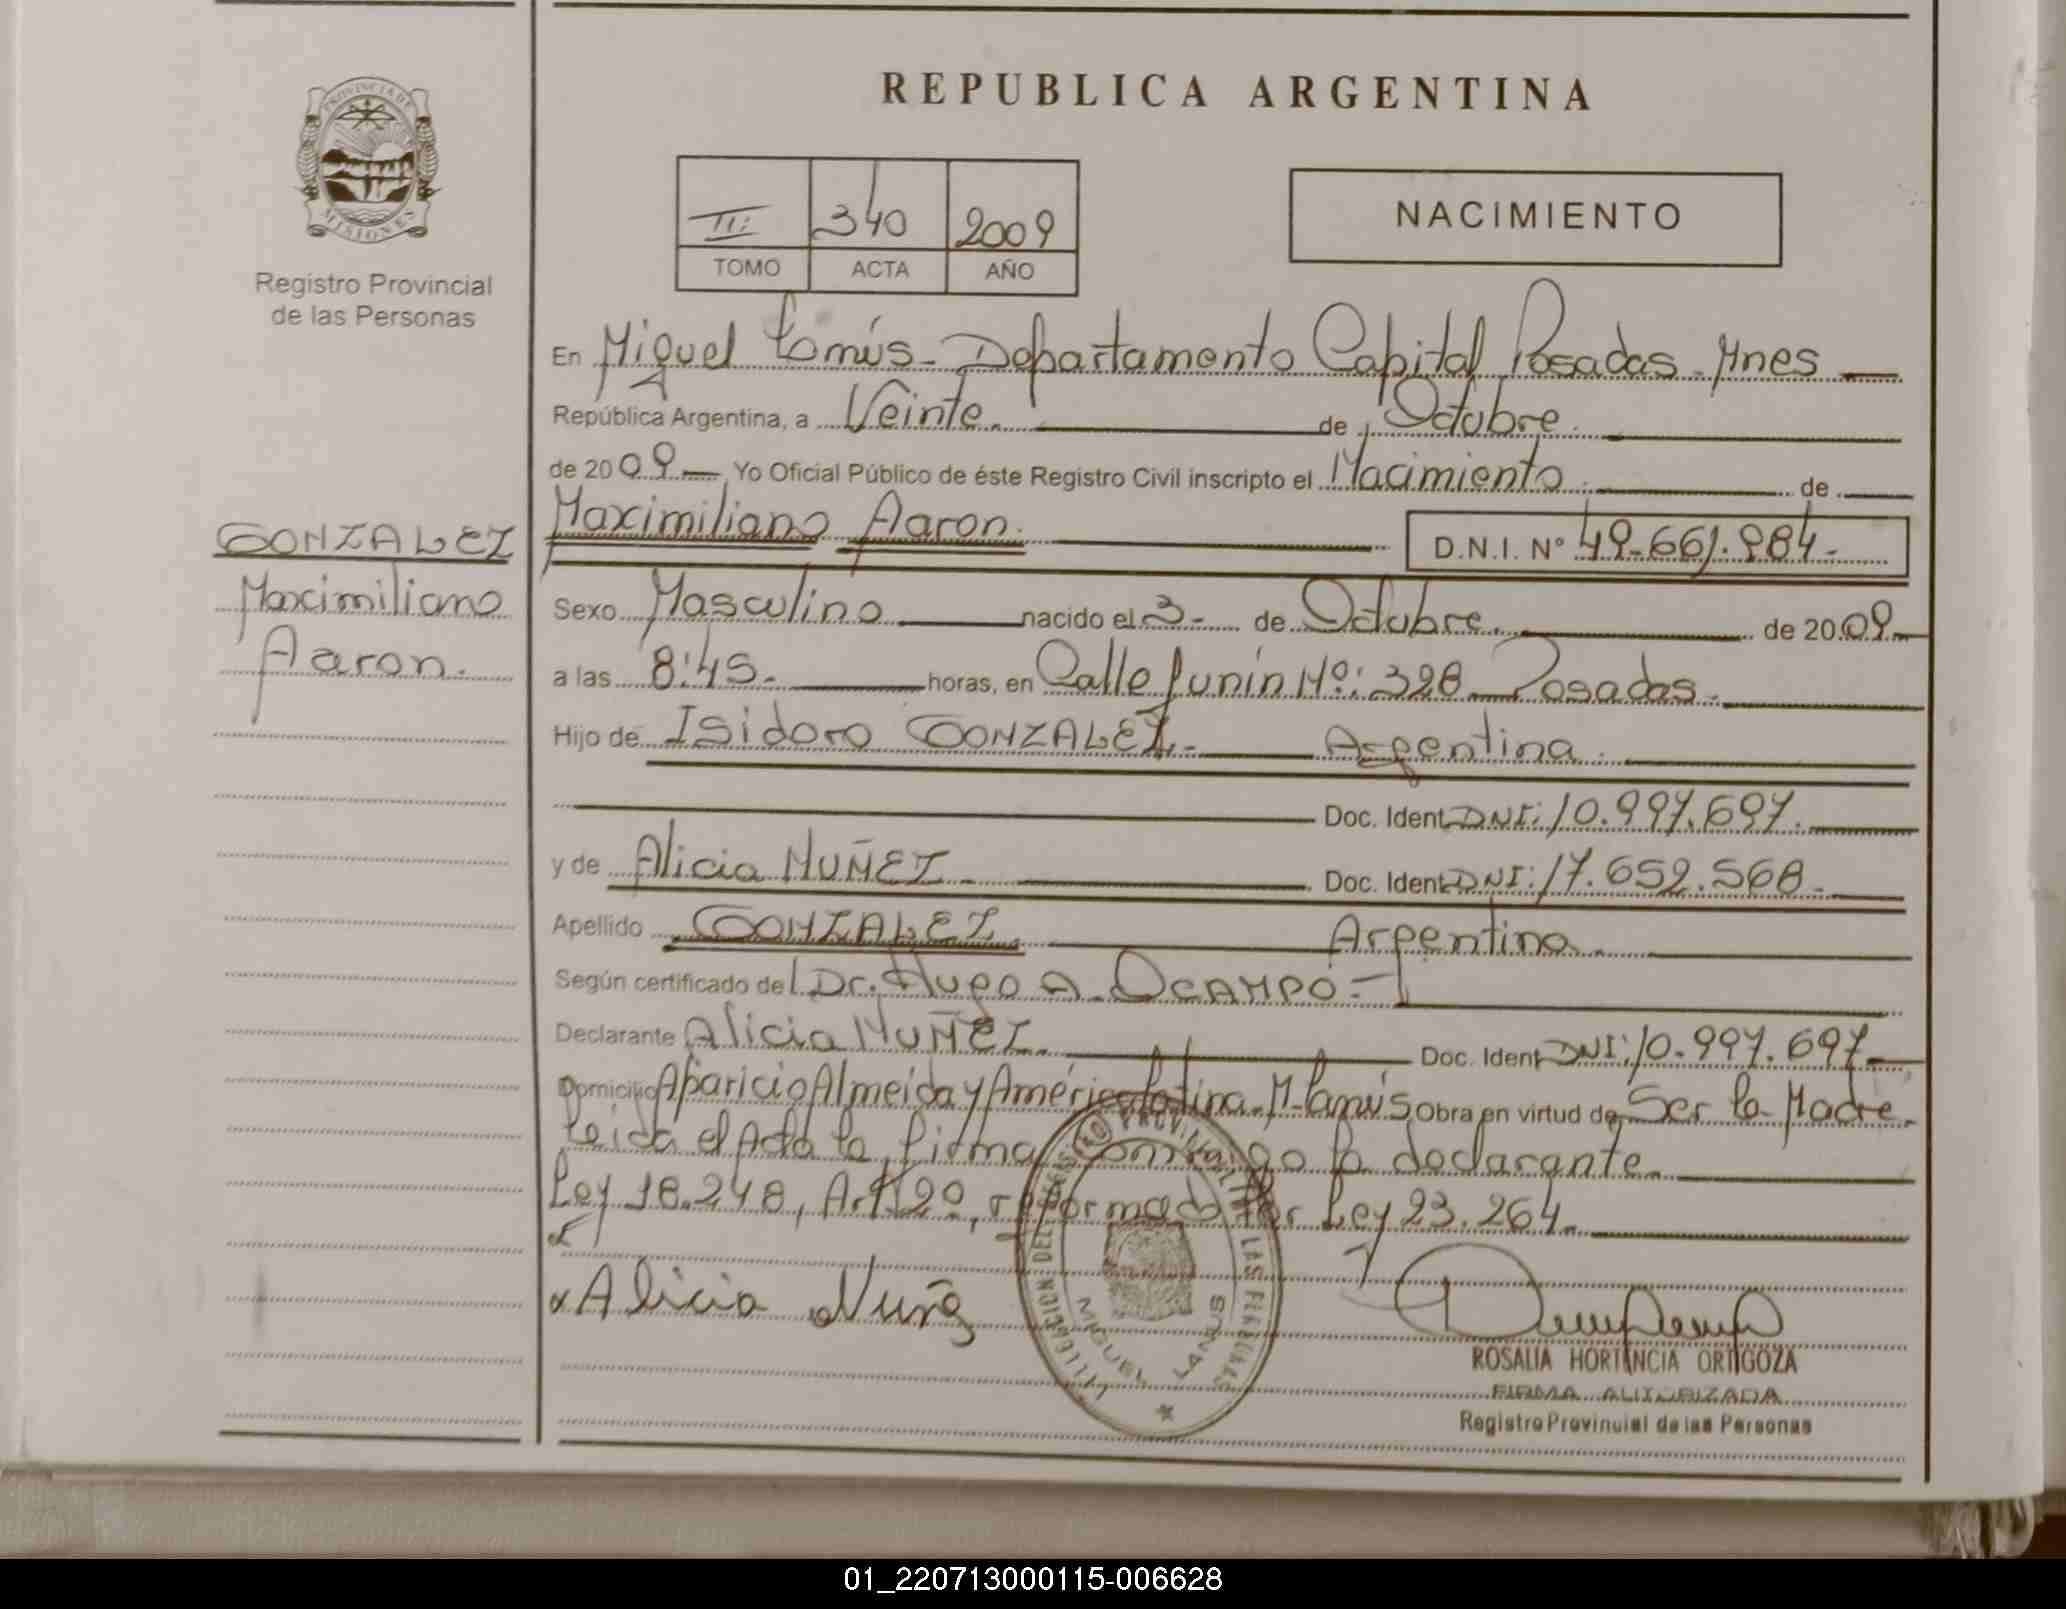 REPUBLICA ARGENTINA
PROVINCIA DE
MISIONES
Registro Provincial
de las Personas
III 340 2009
TOMO ACTA AÑO
NACIMIENTO
En Miguel Lanús - Departamento Capital Posadas - Mnes
República Argentina, a Veinte de Octubre
de 2009 Yo Oficial Público de éste Registro Civil inscripto el Nacimiento de
Maximiliano Aaron. D.N.I. Nº 49.661.984.-
GONZALEZ
Maximiliano
Aaron.
Sexo Masculino nacido el 3- de Octubre. de 2009
a las 8:45. horas, en Calle Junín Nº: 328 Posadas.
Hijo de Isidoro GONZALEZ.- Argentina.
Doc. Ident DNI: 10.997.697.
y de Alicia NUÑEZ. Doc. Ident DNI: 17.652.568.
Apellido GONZALEZ Argentina.
Según certificado del Dr. Hugo A. OCAMPO -
Declarante Alicia NUÑEZ. Doc. Ident DNI: 10.997.697
Domicilio Aparicio Almeida y América Latina - M. Lanús Obra en virtud de Ser la Madre.
Leida el Acta la firma conmigo la declarante.
Ley 18.248, Art. 2º, reformado por Ley 23.264.
Alicia Nuñez
DELEGACION DEL REGISTRO PROVINCIAL DE LAS PERSONAS
MIGUEL LANUS
ROSALIA HORTENCIA ORTIGOZA
FIRMA AUTORIZADA
Registro Provincial de las Personas
01_220713000115-006628